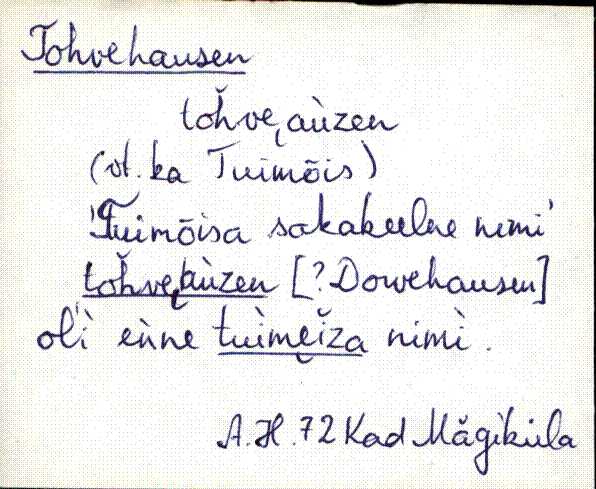 Tohvehausen
tŏhve̮aùzen
(vt. ka Tuimõis)
'Tuimõisa sakakeelne nimi'
tŏhve̮aùzen [? Dowehausen]
oĺì eǹne tuìme̮i̮za nimì.
A.H. 72 Kad Mägiküla